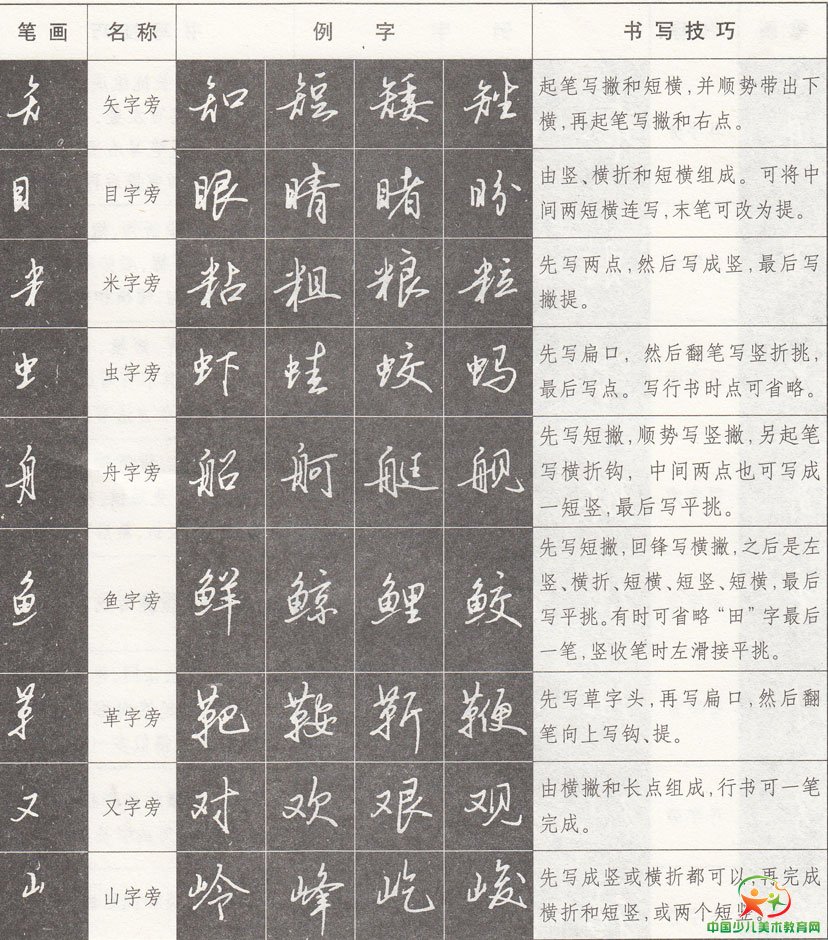 笔画 名称 例字 书写技巧
矢 矢字旁 知 短 矮 矬 起笔写撇和短横,并顺势带出下
横,再起笔写撇和右点。
目 目字旁 眼 睛 睹 盼 由竖、横折和短横组成。可将中
间两短横连写,末笔可改为提。
米 米字旁 粘 粗 粮 粒 先写两点,然后写成竖,最后写
撇提。
虫 虫字旁 虾 蛙 蛟 蚂 先写扁口,然后翻笔写竖折挑,
最后写点。写行书时点可省略。
舟 舟字旁 船 舸 艇 舰 先写短撇,顺势写竖撇,另起笔
写横折钩,中间两点也可写成
一短竖,最后写平挑。
鱼 鱼字旁 鲜 鲸 鲤 鲛 先写短撇,回锋写横撇,之后是左
竖、横折、短横、短竖、短横,最后
写平挑。有时可省略“田”字最后
一笔,竖收笔时左滑接平挑。
革 革字旁 靶 鞍 靳 鞭 先写草字头,再写扁口,然后翻
笔向上写钩、提。
又 又字旁 对 欢 艰 观 由横撇和长点组成,行书可一笔
完成。
山 山字旁 岭 峰 屹 峻 先写成竖或横折都可以,再完成
横折和短竖,或两个短竖。
中国少儿美术教育网